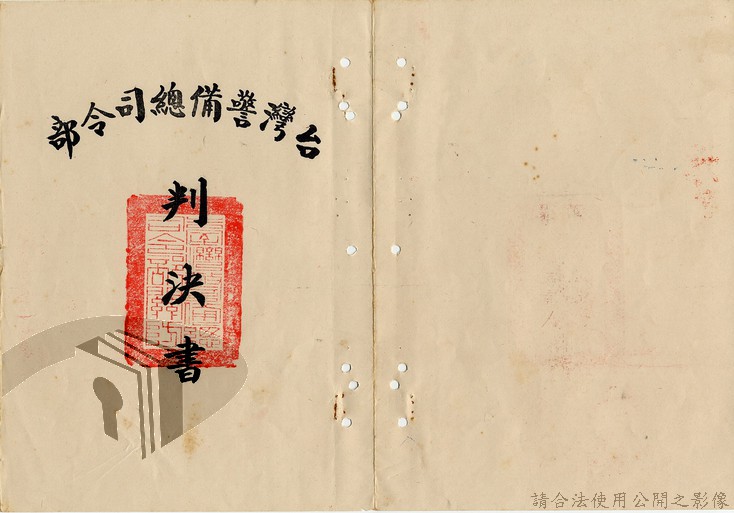 台灣警備總司令部
判決書
請合法使用公開之影像